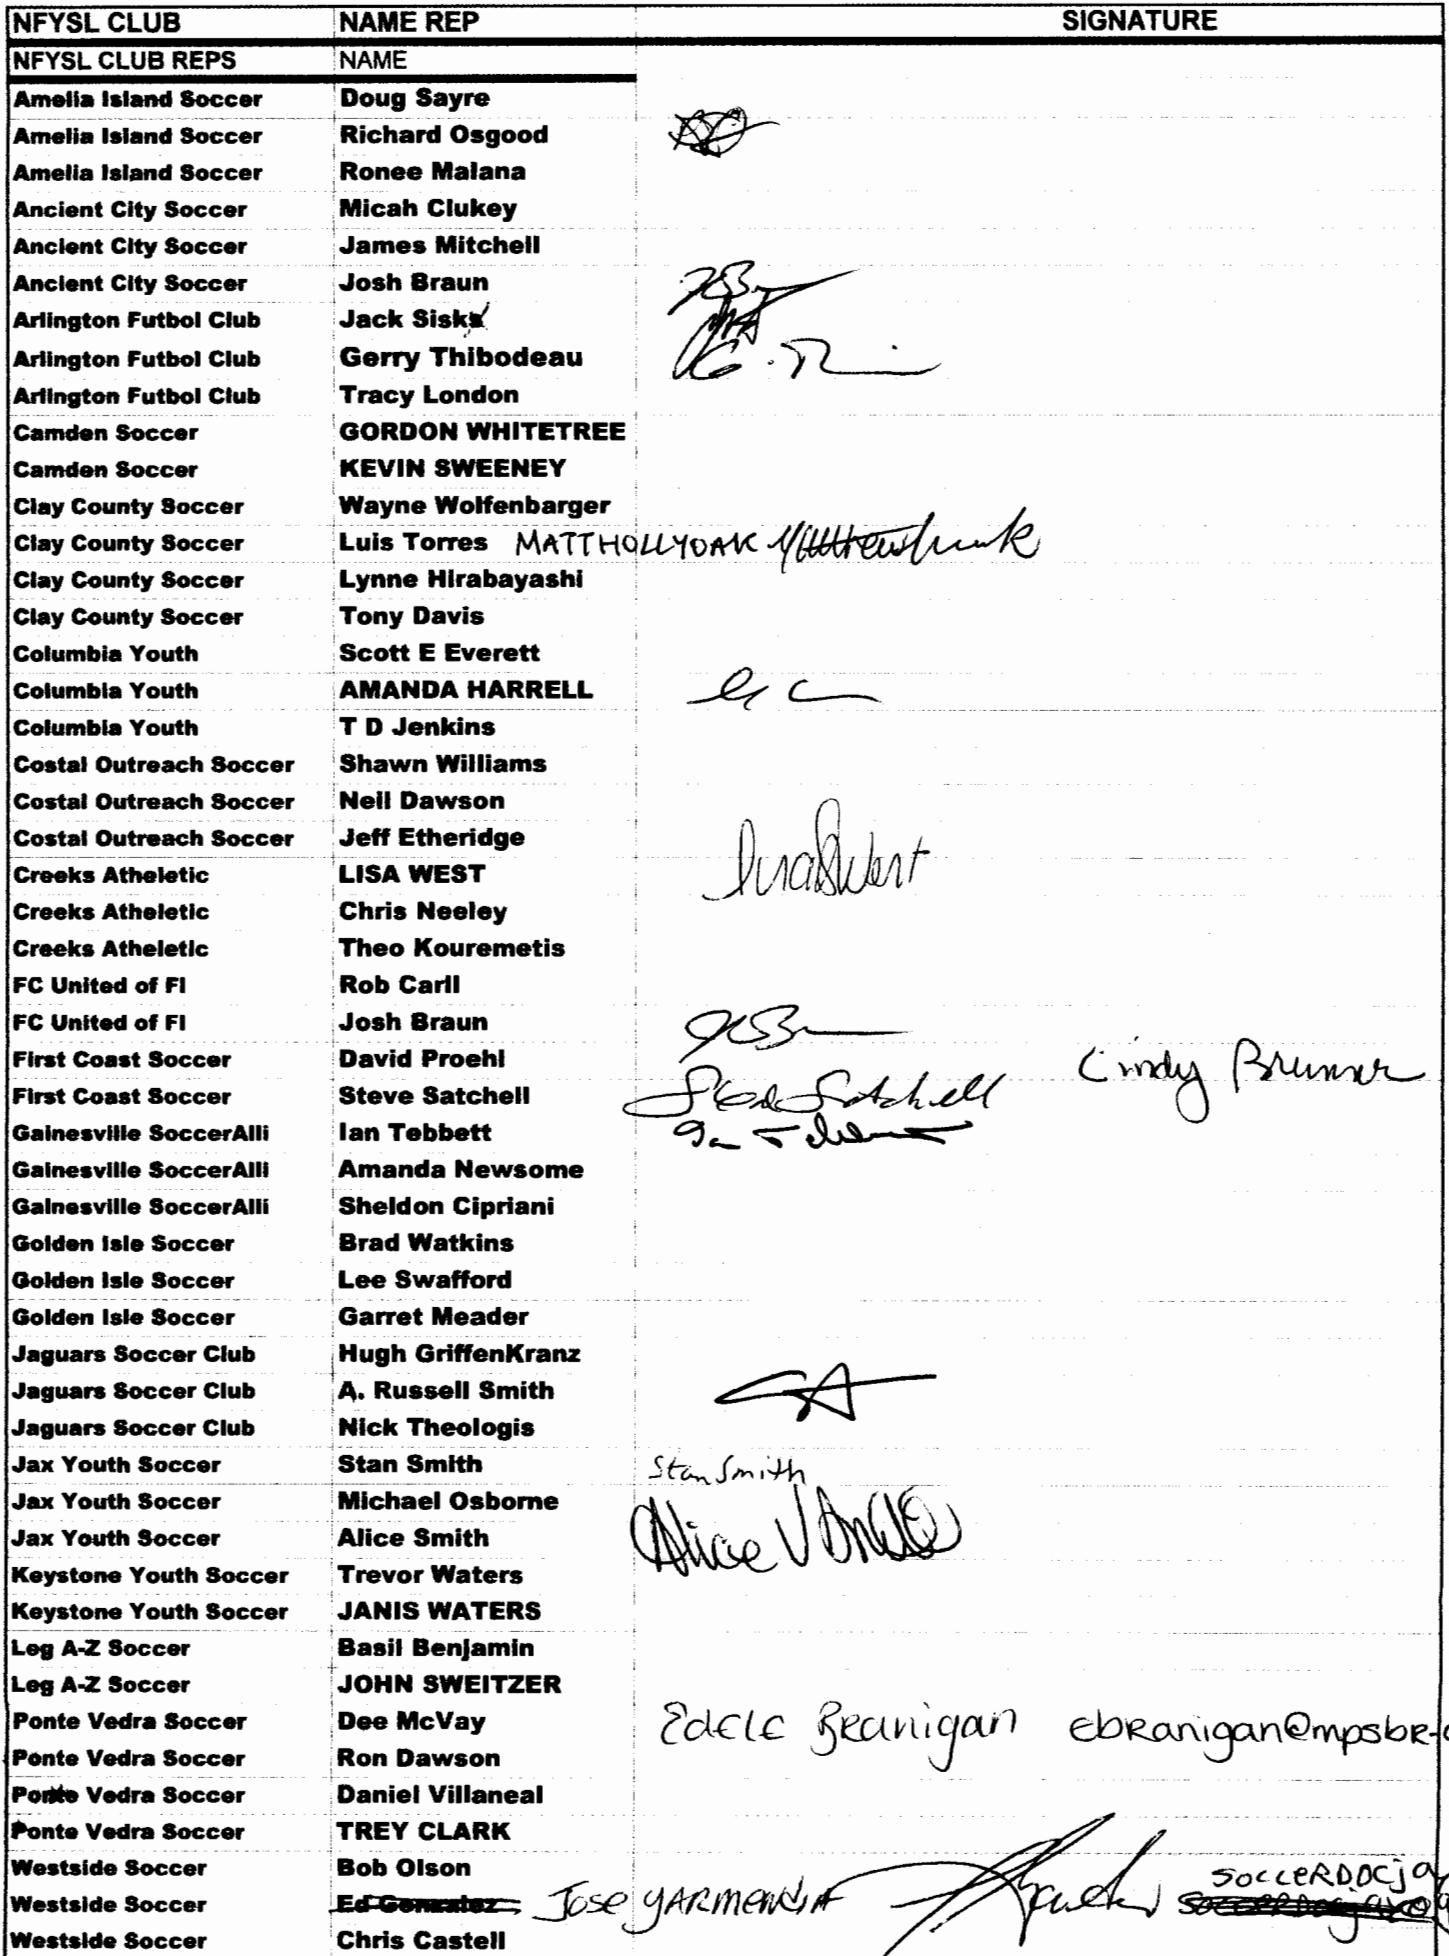 NFYSL CLUB NAME REP SIGNATURE
NFYSL CLUB REPS NAME
Amelia Island Soccer Doug Sayre
Amelia Island Soccer Richard Osgood
Amelia Island Soccer Ronee Malana
Ancient City Soccer Micah Clukey
Ancient City Soccer James Mitchell
Ancient City Soccer Josh Braun
Arlington Futbol Club Jack Sisks
Arlington Futbol Club Gerry Thibodeau
Arlington Futbol Club Tracy London
Camden Soccer GORDON WHITETREE
Camden Soccer KEVIN SWEENEY
Clay County Soccer Wayne Wolfenbarger
Clay County Soccer Luis Torres MATT HOLLYOAK
Clay County Soccer Lynne Hirabayashi
Clay County Soccer Tony Davis
Columbia Youth Scott E Everett
Columbia Youth AMANDA HARRELL
Columbia Youth T D Jenkins
Costal Outreach Soccer Shawn Williams
Costal Outreach Soccer Neil Dawson
Costal Outreach Soccer Jeff Etheridge
Creeks Atheletic LISA WEST
Creeks Atheletic Chris Neeley
Creeks Atheletic Theo Kouremetis
FC United of Fl Rob Carll
FC United of Fl Josh Braun
First Coast Soccer David Proehl Cindy Brunner
First Coast Soccer Steve Satchell Steve Satchell
Gainesville SoccerAlli Ian Tebbett
Gainesville SoccerAlli Amanda Newsome
Gainesville SoccerAlli Sheldon Cipriani
Golden Isle Soccer Brad Watkins
Golden Isle Soccer Lee Swafford
Golden Isle Soccer Garret Meader
Jaguars Soccer Club Hugh GriffenKranz
Jaguars Soccer Club A. Russell Smith
Jaguars Soccer Club Nick Theologis
Jax Youth Soccer Stan Smith Stan Smith
Jax Youth Soccer Michael Osborne
Jax Youth Soccer Alice Smith Alice V
Keystone Youth Soccer Trevor Waters
Keystone Youth Soccer JANIS WATERS
Leg A-Z Soccer Basil Benjamin
Leg A-Z Soccer JOHN SWEITZER
Ponte Vedra Soccer Dee McVay Edele Branigan ebranigan@mpsbr-
Ponte Vedra Soccer Ron Dawson
Ponte Vedra Soccer Daniel Villaneal
Ponte Vedra Soccer TREY CLARK
Westside Soccer Bob Olson SOCCERDOCja
Westside Soccer Ed Gonzalez Jose
Westside Soccer Chris Castell